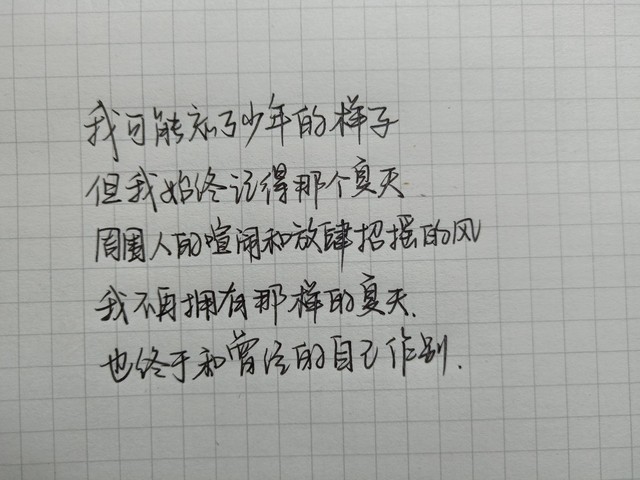 我可能忘了少年的样子
但我始终记得那个夏天
周围人的喧闹和放肆招摇的风
我不再拥有那样的夏天.
也终于和曾经的自己作别.